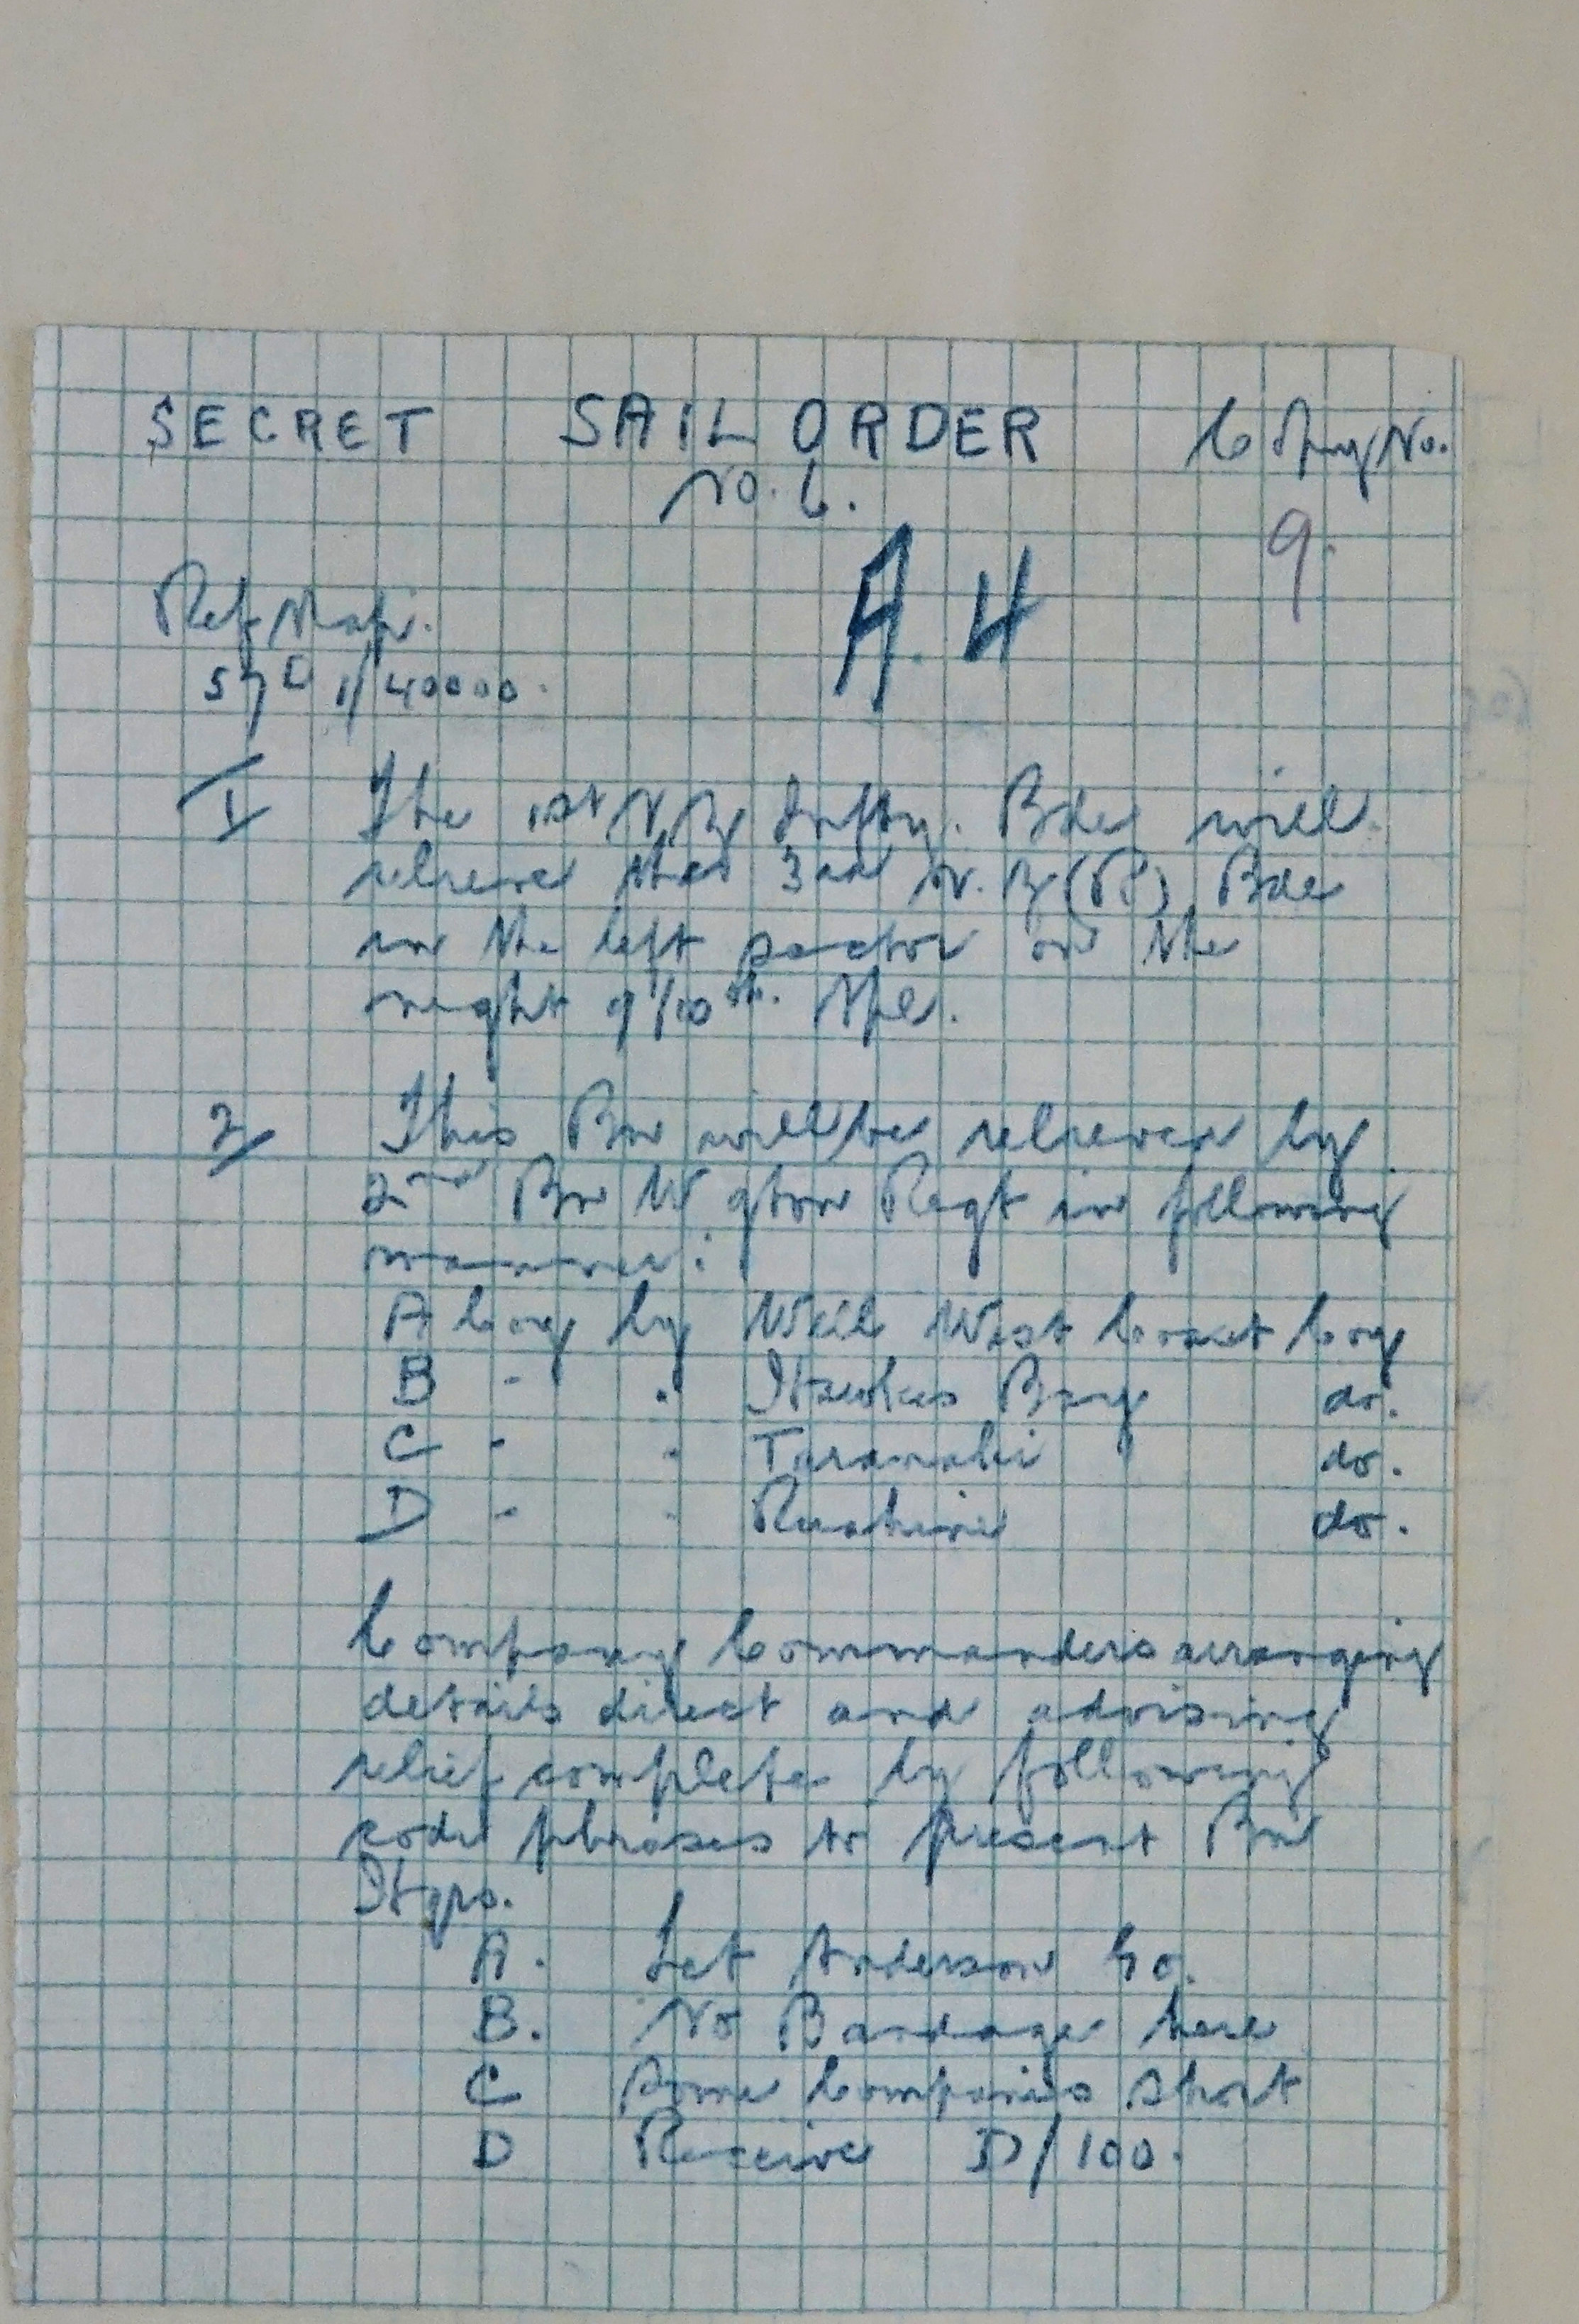 SECRET SAIL ORDER Copy No.
No. 6. 9.
A. 4
Ref Map.
57D 1/40000.
1/ The 1st N.Z. Inftry. Bde will
relieve the 3rd N.Z. (R) Bde
in the left sector on the
night 9/10th. Apl.
2/ This Bn will be relieved by
2nd Bn W'gton Regt in following
manner:
A Coy by Well West Coast Coy
B " " Hawkes Bay do.
C " " Taranaki do.
D " " Ruahine do.
Company Commanders arranging
details direct and advising
relief complete by following
code phrases to present Bn
Hqrs.
A. Let Anderson Go.
B. No Bandage here
C Some Companies short
D Receive D/100.